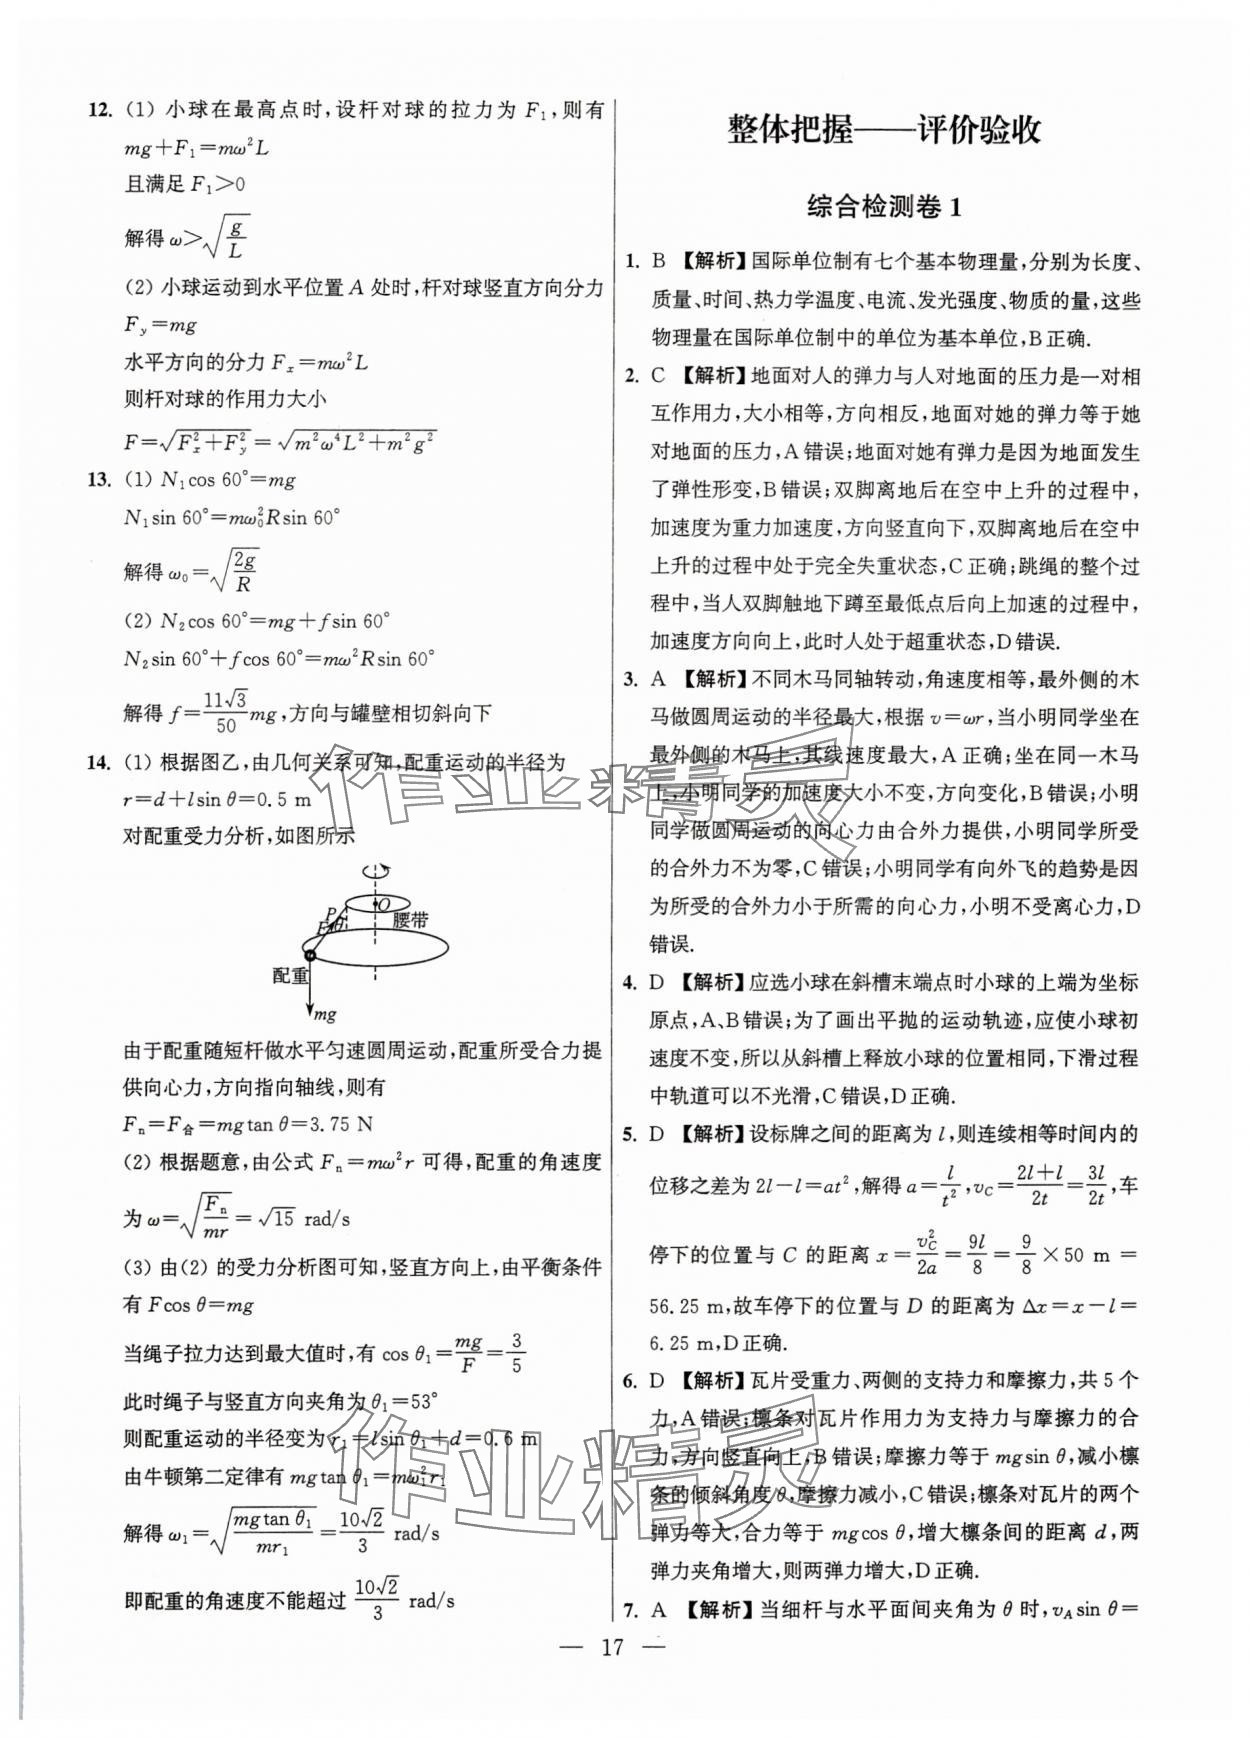 12. (1) 小球在最高点时,设杆对球的拉力为 F₁,则有
mg+F₁=mω²L
且满足 F₁>0
解得 ω>√(g/L)
(2) 小球运动到水平位置 A 处时,杆对球竖直方向分力
F_y=mg
水平方向的分力 F_x=mω²L
则杆对球的作用力大小
F=√(F_x²+F_y²)=√(m²ω⁴L²+m²g²)
13. (1) N₁cos 60°=mg
N₁sin 60°=mω₀²Rsin 60°
解得 ω₀=√(2g/R)
(2) N₂cos 60°=mg+fsin 60°
N₂sin 60°+fcos 60°=mω²Rsin 60°
解得 f=(11√3/50)mg,方向与罐壁相切斜向下
14. (1) 根据图乙,由几何关系可知,配重运动的半径为
r=d+lsin θ=0.5 m
对配重受力分析,如图所示
P O
F θ 腰带
配重
mg
由于配重随短杆做水平匀速圆周运动,配重所受合力提
供向心力,方向指向轴线,则有
Fₙ=F合=mgtan θ=3.75 N
(2) 根据题意,由公式 Fₙ=mω²r 可得,配重的角速度
为 ω=√(Fₙ/mr)=√15 rad/s
(3) 由(2) 的受力分析图可知,竖直方向上,由平衡条件
有 Fcos θ=mg
当绳子拉力达到最大值时,有 cos θ₁=mg/F=3/5
此时绳子与竖直方向夹角为 θ₁=53°
则配重运动的半径变为 r₁=lsin θ₁+d=0.6 m
由牛顿第二定律有 mgtan θ₁=mω₁²r₁
解得 ω₁=√(mgtan θ₁/mr₁)=10√2/3 rad/s
即配重的角速度不能超过 10√2/3 rad/s
整体把握——评价验收
综合检测卷 1
1. B 【解析】国际单位制有七个基本物理量,分别为长度、
质量、时间、热力学温度、电流、发光强度、物质的量,这些
物理量在国际单位制中的单位为基本单位,B正确.
2. C 【解析】地面对人的弹力与人对地面的压力是一对相
互作用力,大小相等,方向相反,地面对她的弹力等于她
对地面的压力,A错误;地面对她有弹力是因为地面发生
了弹性形变,B错误;双脚离地后在空中上升的过程中,
加速度为重力加速度,方向竖直向下,双脚离地后在空中
上升的过程中处于完全失重状态,C正确;跳绳的整个过
程中,当人双脚触地下蹲至最低点后向上加速的过程中,
加速度方向向上,此时人处于超重状态,D错误.
3. A 【解析】不同木马同轴转动,角速度相等,最外侧的木
马做圆周运动的半径最大,根据 v=ωr,当小明同学坐在
最外侧的木马上,其线速度最大,A正确;坐在同一木马
上,小明同学的加速度大小不变,方向变化,B错误;小明
同学做圆周运动的向心力由合外力提供,小明同学所受
的合外力不为零,C错误;小明同学有向外飞的趋势是因
为所受的合外力小于所需的向心力,小明不受离心力,D
错误.
4. D 【解析】应选小球在斜槽末端点时小球的上端为坐标
原点,A、B错误;为了画出平抛的运动轨迹,应使小球初
速度不变,所以从斜槽上释放小球的位置相同,下滑过程
中轨道可以不光滑,C错误,D正确.
5. D 【解析】设标牌之间的距离为 l,则连续相等时间内的
位移之差为 2l-l=at²,解得 a=l/t²,v_C=(2l+l)/2t=3l/2t,车
停下的位置与 C 的距离 x=v_C²/2a=9l/8=9/8×50 m=
56.25 m,故车停下的位置与 D 的距离为 Δx=x-l=
6.25 m,D正确.
6. D 【解析】瓦片受重力、两侧的支持力和摩擦力,共5个
力,A错误;檩条对瓦片作用力为支持力与摩擦力的合
力,方向竖直向上,B错误;摩擦力等于 mgsin θ,减小檩
条的倾斜角度θ,摩擦力减小,C错误;檩条对瓦片的两个
弹力等大,合力等于 mgcos θ,增大檩条间的距离 d,两
弹力夹角增大,则两弹力增大,D正确.
7. A 【解析】当细杆与水平面间夹角为 θ 时,v_A sin θ=
— 17 —
作业精灵
作业精灵